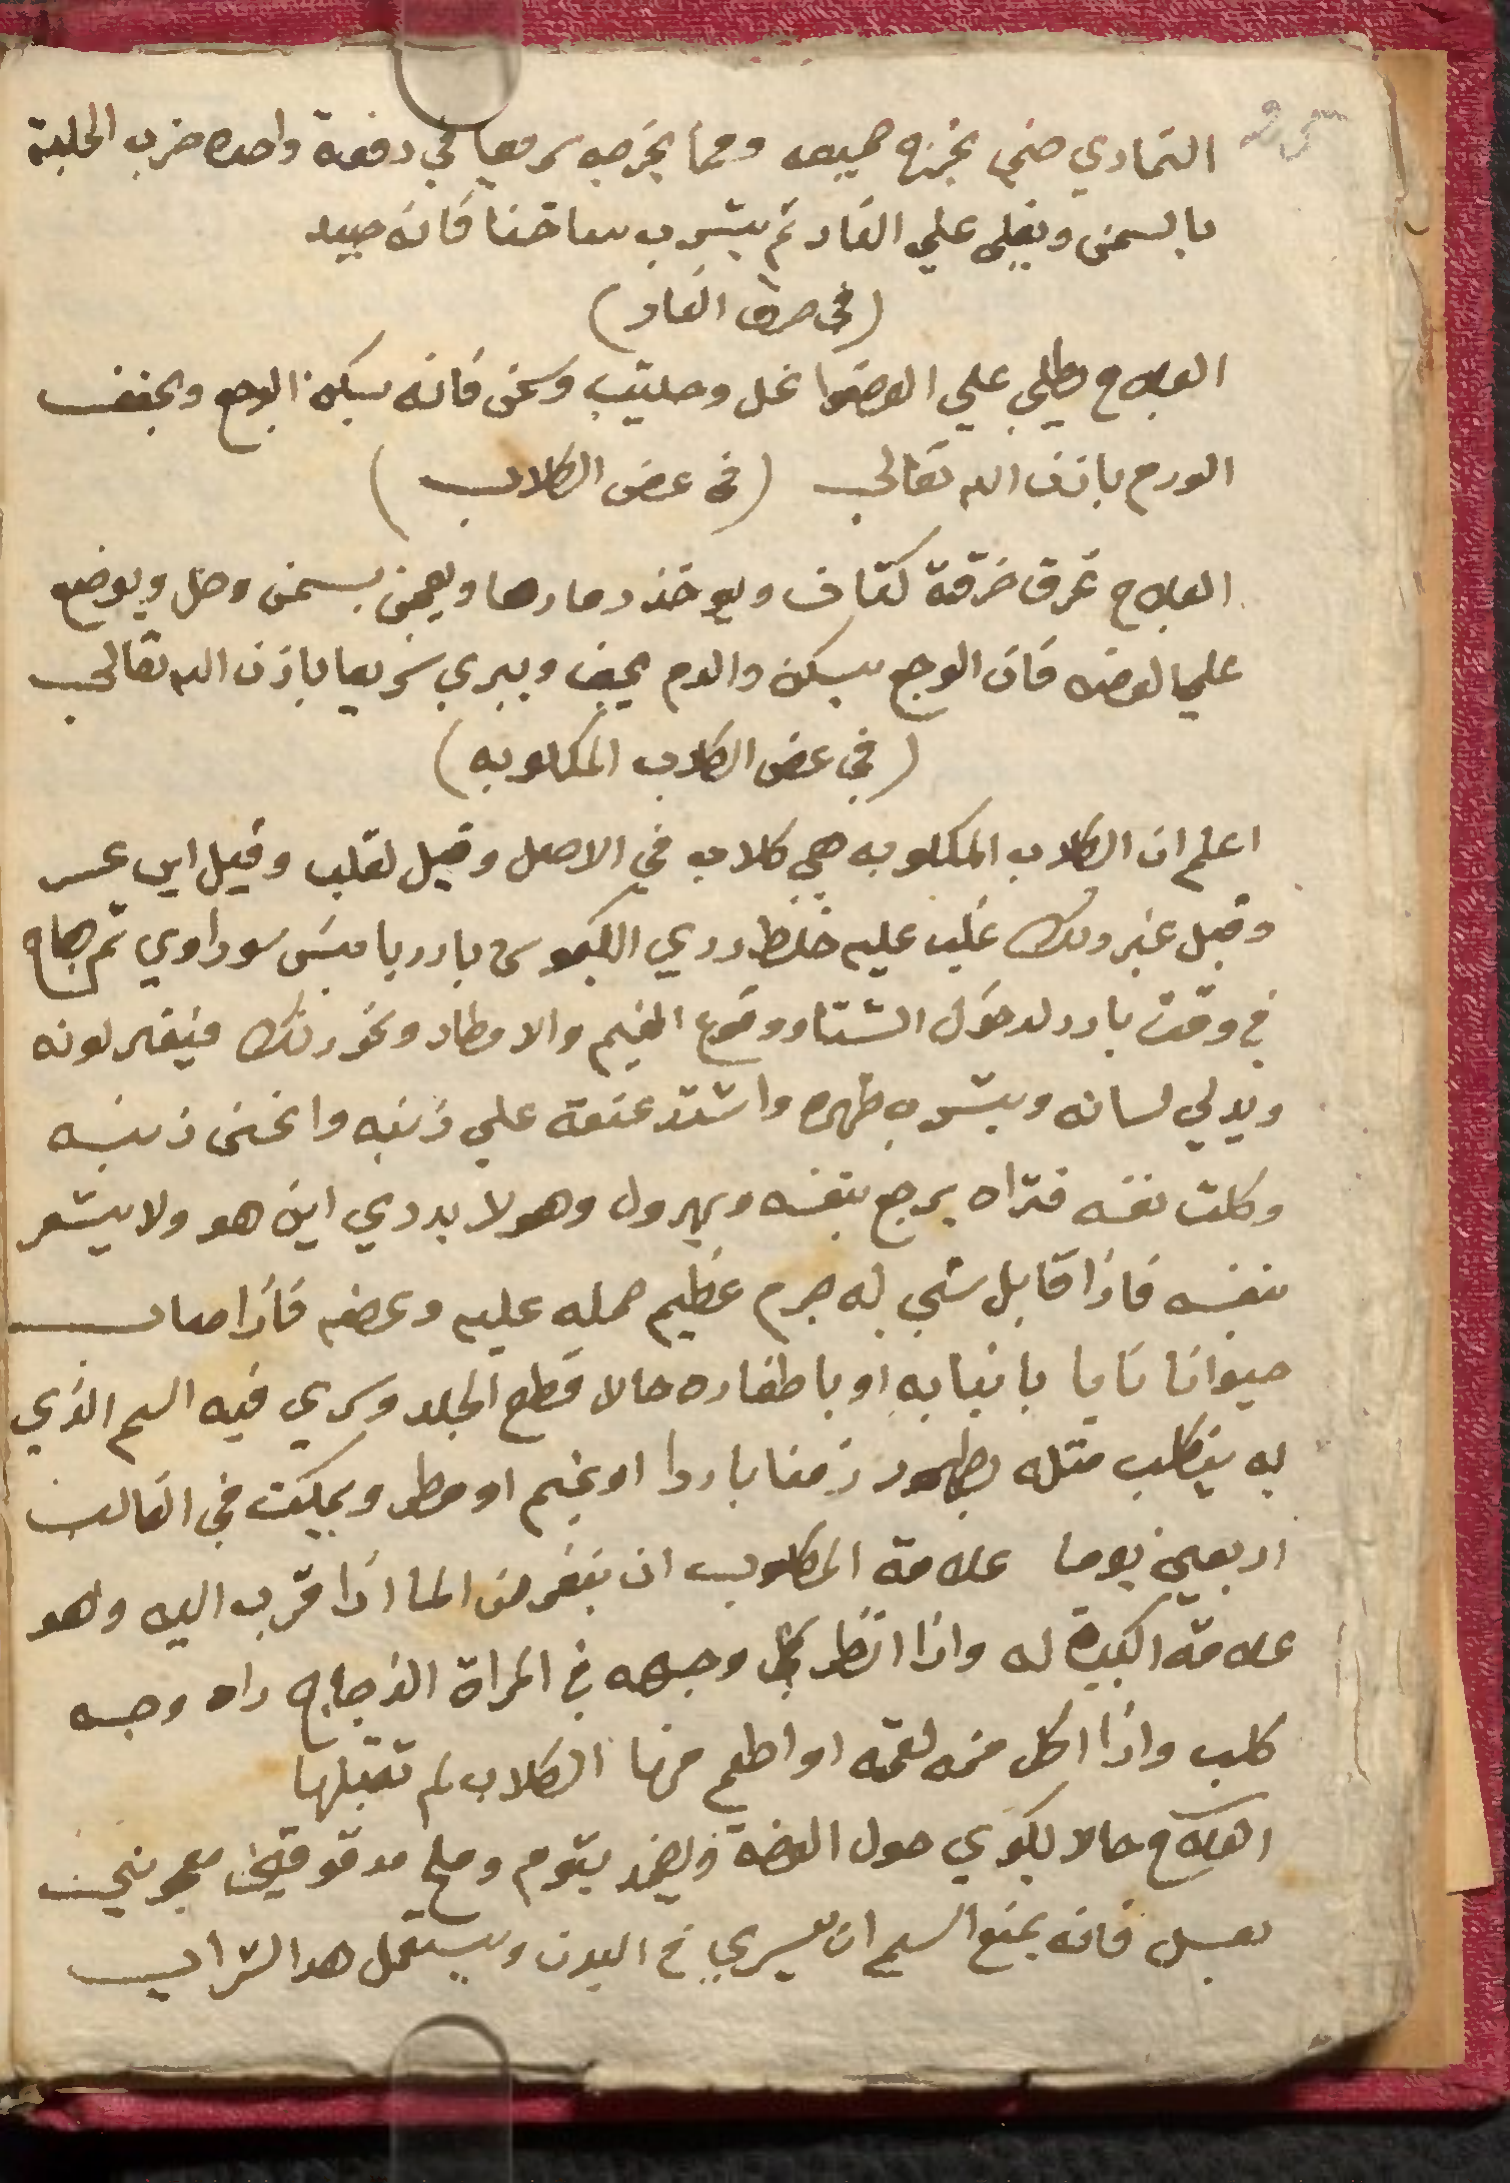 التمادي حتى يخرج جميعه ومما يخرجه سريعا في دفعة واحده ضرب الحلبة
بالسمن ويغلى علي النار ثم يشرب ساخنا فانه جيد
(في حرق النار)
العلاج يطلي علي العضوا خل وحلتيت وسمن فانه يسكن الوجع ويخفف
الورم باذن الله تعالى (في عض الكلاب)
العلاج تحرق خرقة كتان ويوخذ رمادها ويعجن بسمن وخل ويوضع
علي العضه فان الوجع يسكن والدم يجف ويبري سريعا باذن الله تعالى
(في عض الكلاب المكلوبه)
اعلم ان الكلاب المكلوبه هي كلاب في الاصل وقيل ثعلب وقيل ابن عرس
وقيل غير ذلك غلب عليه خلط ردي الكيموس بارد يابس سوداوي ثم هاج
في وقت بارد لدخول الشتا ووقوع الغيم والامطار ونحو ذلك فيتغير لونه
ويدلي لسانه ويتسرب ظهره واشتد عنقه علي ذنبه وانحنى ذنبه
وكلت نفسه فتراه يرجع بنفسه ويهرول وهو لا يدري اين هو ولا يشعر
بنفسه فاذا قابل شي له جرم عظيم حمله عليه وعضه فاذا صاب
حيوانا نابا بانيابه او باظفاره حالا قطع الجلد وسري فيه السم الذي
به ينكلب مثله بظهور زمنا باردا او بغيم او مطر ويمكث في الغالب
اربعين يوما علامة المكلوب ان ينفر من الما اذا قرب اليه وهو
علامة الكبيرة له واذا انظر وجهه في المراة الزجاج راه وجه
كلب واذا اكل منه لقمه او اطعم منها الكلاب لم تقبلها
العلاج حالا يكوي حول العضة ويضمد بثوم وملح مدقوقين معجونين
بعسل فانه يمنع السم ان يسري في البدن ويستعمل هدا الشراب